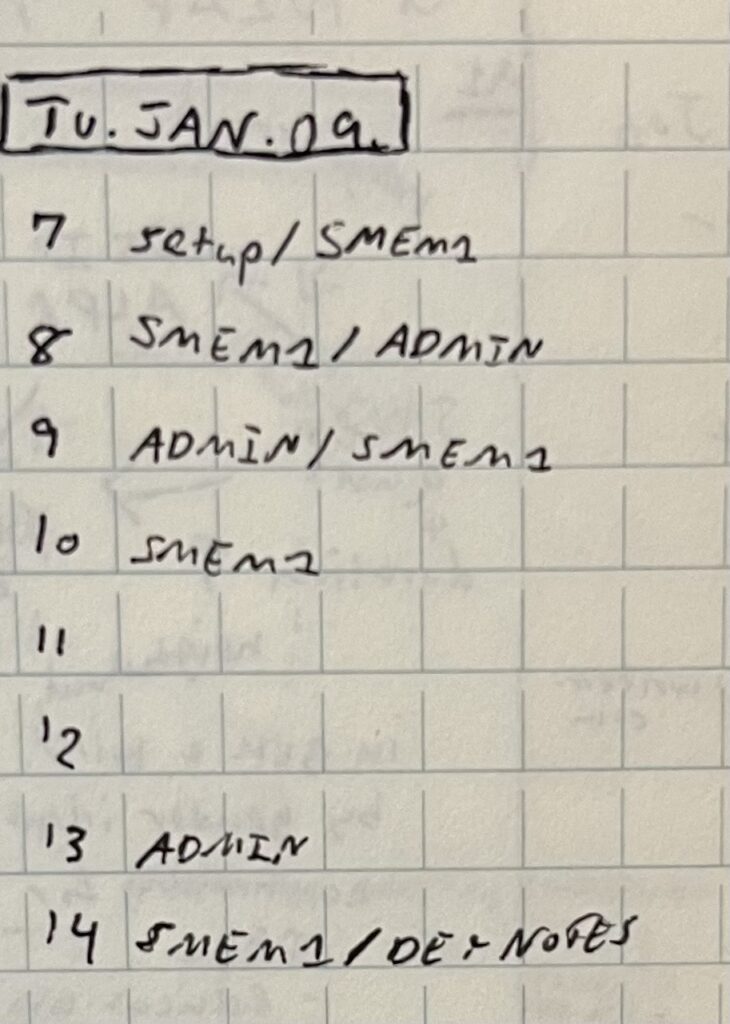 TU. JAN. 09.
7 setup / SMEM1
8 SMEM1 / ADMIN
9 ADMIN / SMEM1
10 SMEM1
11
12
13 ADMIN
14 SMEM1 / NOTES